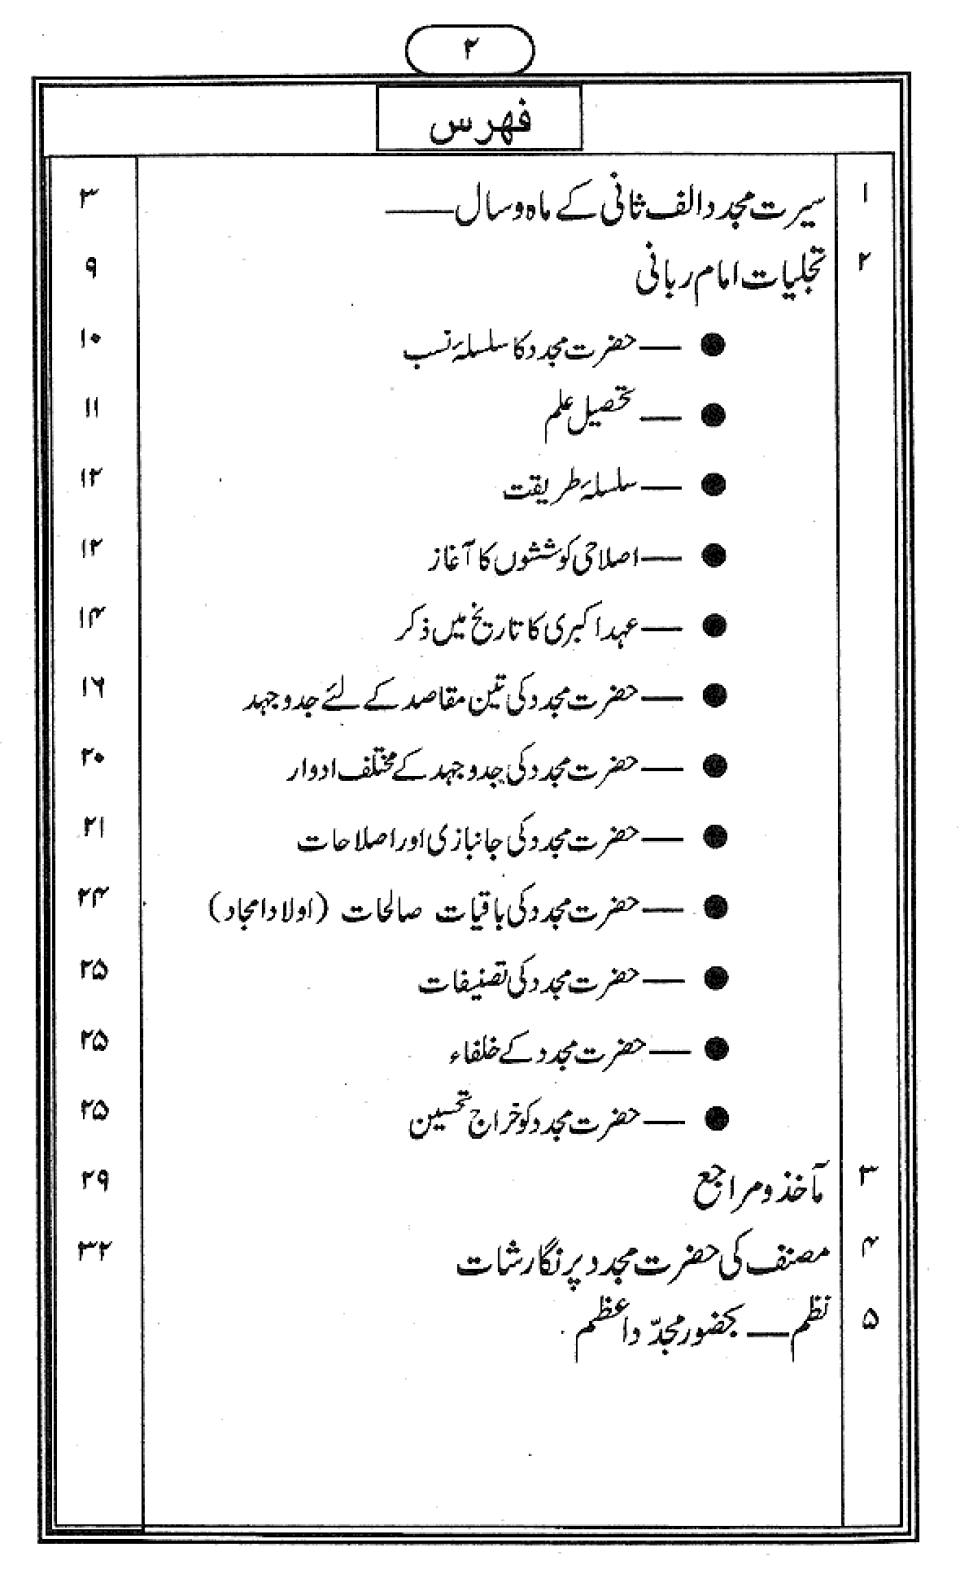 ۲
فہرس
۱ سیرت مجدد الف ثانی کے ماہ و سال —— ۳
۲ تجلیات امام ربانی ۹
● — حضرت مجدد کا سلسلۂ نسب ۱۰
● — تحصیل علم ۱۱
● — سلسلۂ طریقت ۱۲
● — اصلاحی کوششوں کا آغاز ۱۲
● — عہد اکبری کا تاریخ میں ذکر ۱۴
● — حضرت مجدد کی تین مقاصد کے لئے جدوجہد ۱۶
● — حضرت مجدد کی جدوجہد کے مختلف ادوار ۲۰
● — حضرت مجدد کی جانبازی اور اصلاحات ۲۱
● — حضرت مجدد کی باقیات صالحات (اولاد امجاد) ۲۴
● — حضرت مجدد کی تصنیفات ۲۵
● — حضرت مجدد کے خلفاء ۲۵
● — حضرت مجدد کو خراج تحسین ۲۵
۳ مآخذ و مراجع ۲۹
۴ مصنف کی حضرت مجدد پر نگارشات ۳۲
۵ نظم — بحضور مجدّد اعظم